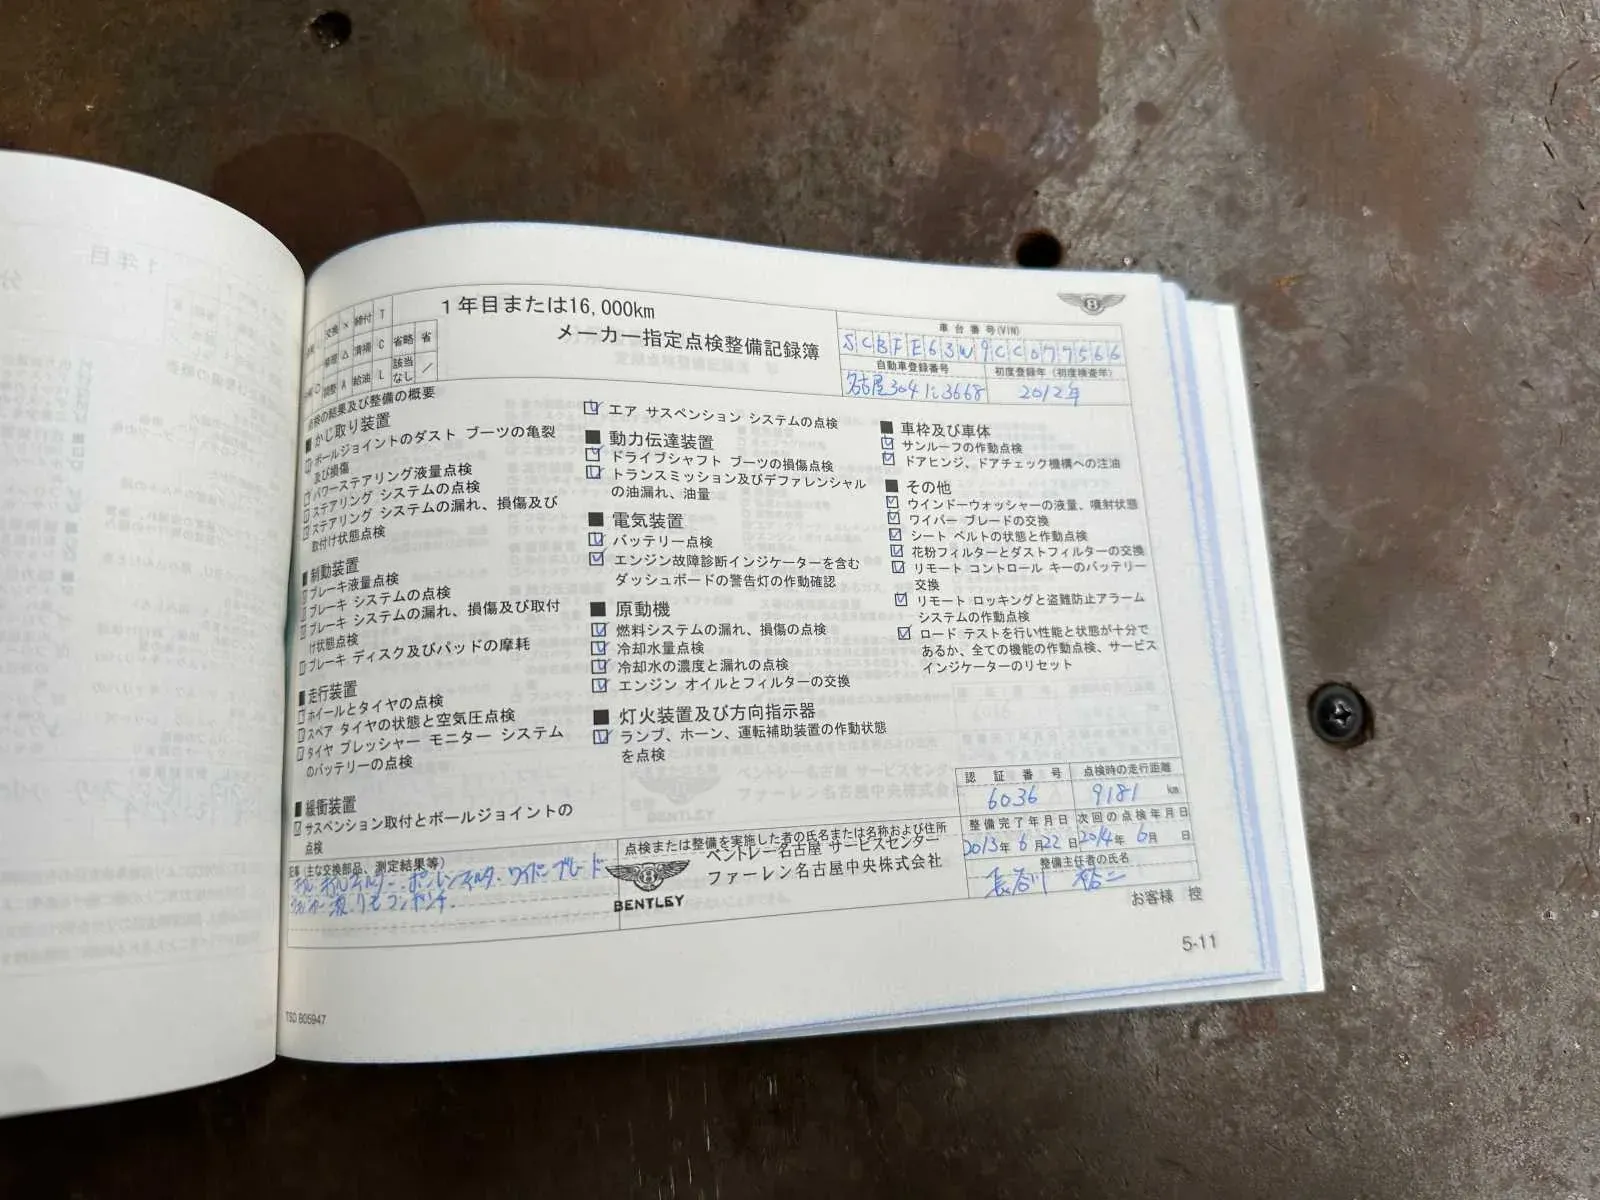 交換 × 締付 T
修理 △ 清掃 C 省略 省
調整 A 給油 L 該当なし ／
1年目または16,000km
メーカー指定点検整備記録簿
車台番号(VIN)
SCBFE63W9CC077566
自動車登録番号
初度登録年（初度検査年）
名古屋304 に3668
2012年
点検の結果及び整備の概要
■ かじ取り装置
ボールジョイントのダスト ブーツの亀裂
及び損傷
パワーステアリング液量点検
ステアリング システムの点検
ステアリング システムの漏れ、損傷及び
取付け状態点検
■ 制動装置
ブレーキ液量点検
ブレーキ システムの点検
ブレーキ システムの漏れ、損傷及び取付
け状態点検
ブレーキ ディスク及びパッドの摩耗
■ 走行装置
ホイールとタイヤの点検
スペア タイヤの状態と空気圧点検
タイヤ プレッシャー モニター システム
のバッテリーの点検
■ 緩衝装置
サスペンション取付とボールジョイントの
点検
エア サスペンション システムの点検
■ 動力伝達装置
ドライブシャフト ブーツの損傷点検
トランスミッション及びデファレンシャル
の油漏れ、油量
■ 電気装置
バッテリー点検
エンジン故障診断インジケーターを含む
ダッシュボードの警告灯の作動確認
■ 原動機
燃料システムの漏れ、損傷の点検
冷却水量点検
冷却水の濃度と漏れの点検
エンジン オイルとフィルターの交換
■ 灯火装置及び方向指示器
ランプ、ホーン、運転補助装置の作動状態
を点検
■ 車枠及び車体
サンルーフの作動点検
ドアヒンジ、ドアチェック機構への注油
■ その他
ウインドーウォッシャーの液量、噴射状態
ワイパー ブレードの交換
シート ベルトの状態と作動点検
花粉フィルターとダストフィルターの交換
リモート コントロール キーのバッテリー
交換
リモート ロッキングと盗難防止アラーム
システムの作動点検
ロード テストを行い性能と状態が十分で
あるか、全ての機能の作動点検、サービス
インジケーターのリセット
記事（主な交換部品、測定結果等）
オイル、オイルフィルター、ポレンフィルタ、ワイパーブレード
ウォッシャー液、リモコンデンチ
点検または整備を実施した者の氏名または名称および住所
ベントレー名古屋 サービスセンター
ファーレン名古屋中央株式会社
BENTLEY
認証番号
点検時の走行距離
6036
9181 km
整備完了年月日
次回の点検年月日
2013年 6月22日
2014年 6月 日
整備主任者の氏名
長谷川 裕二
お客様 控
5-11
TSD B05947